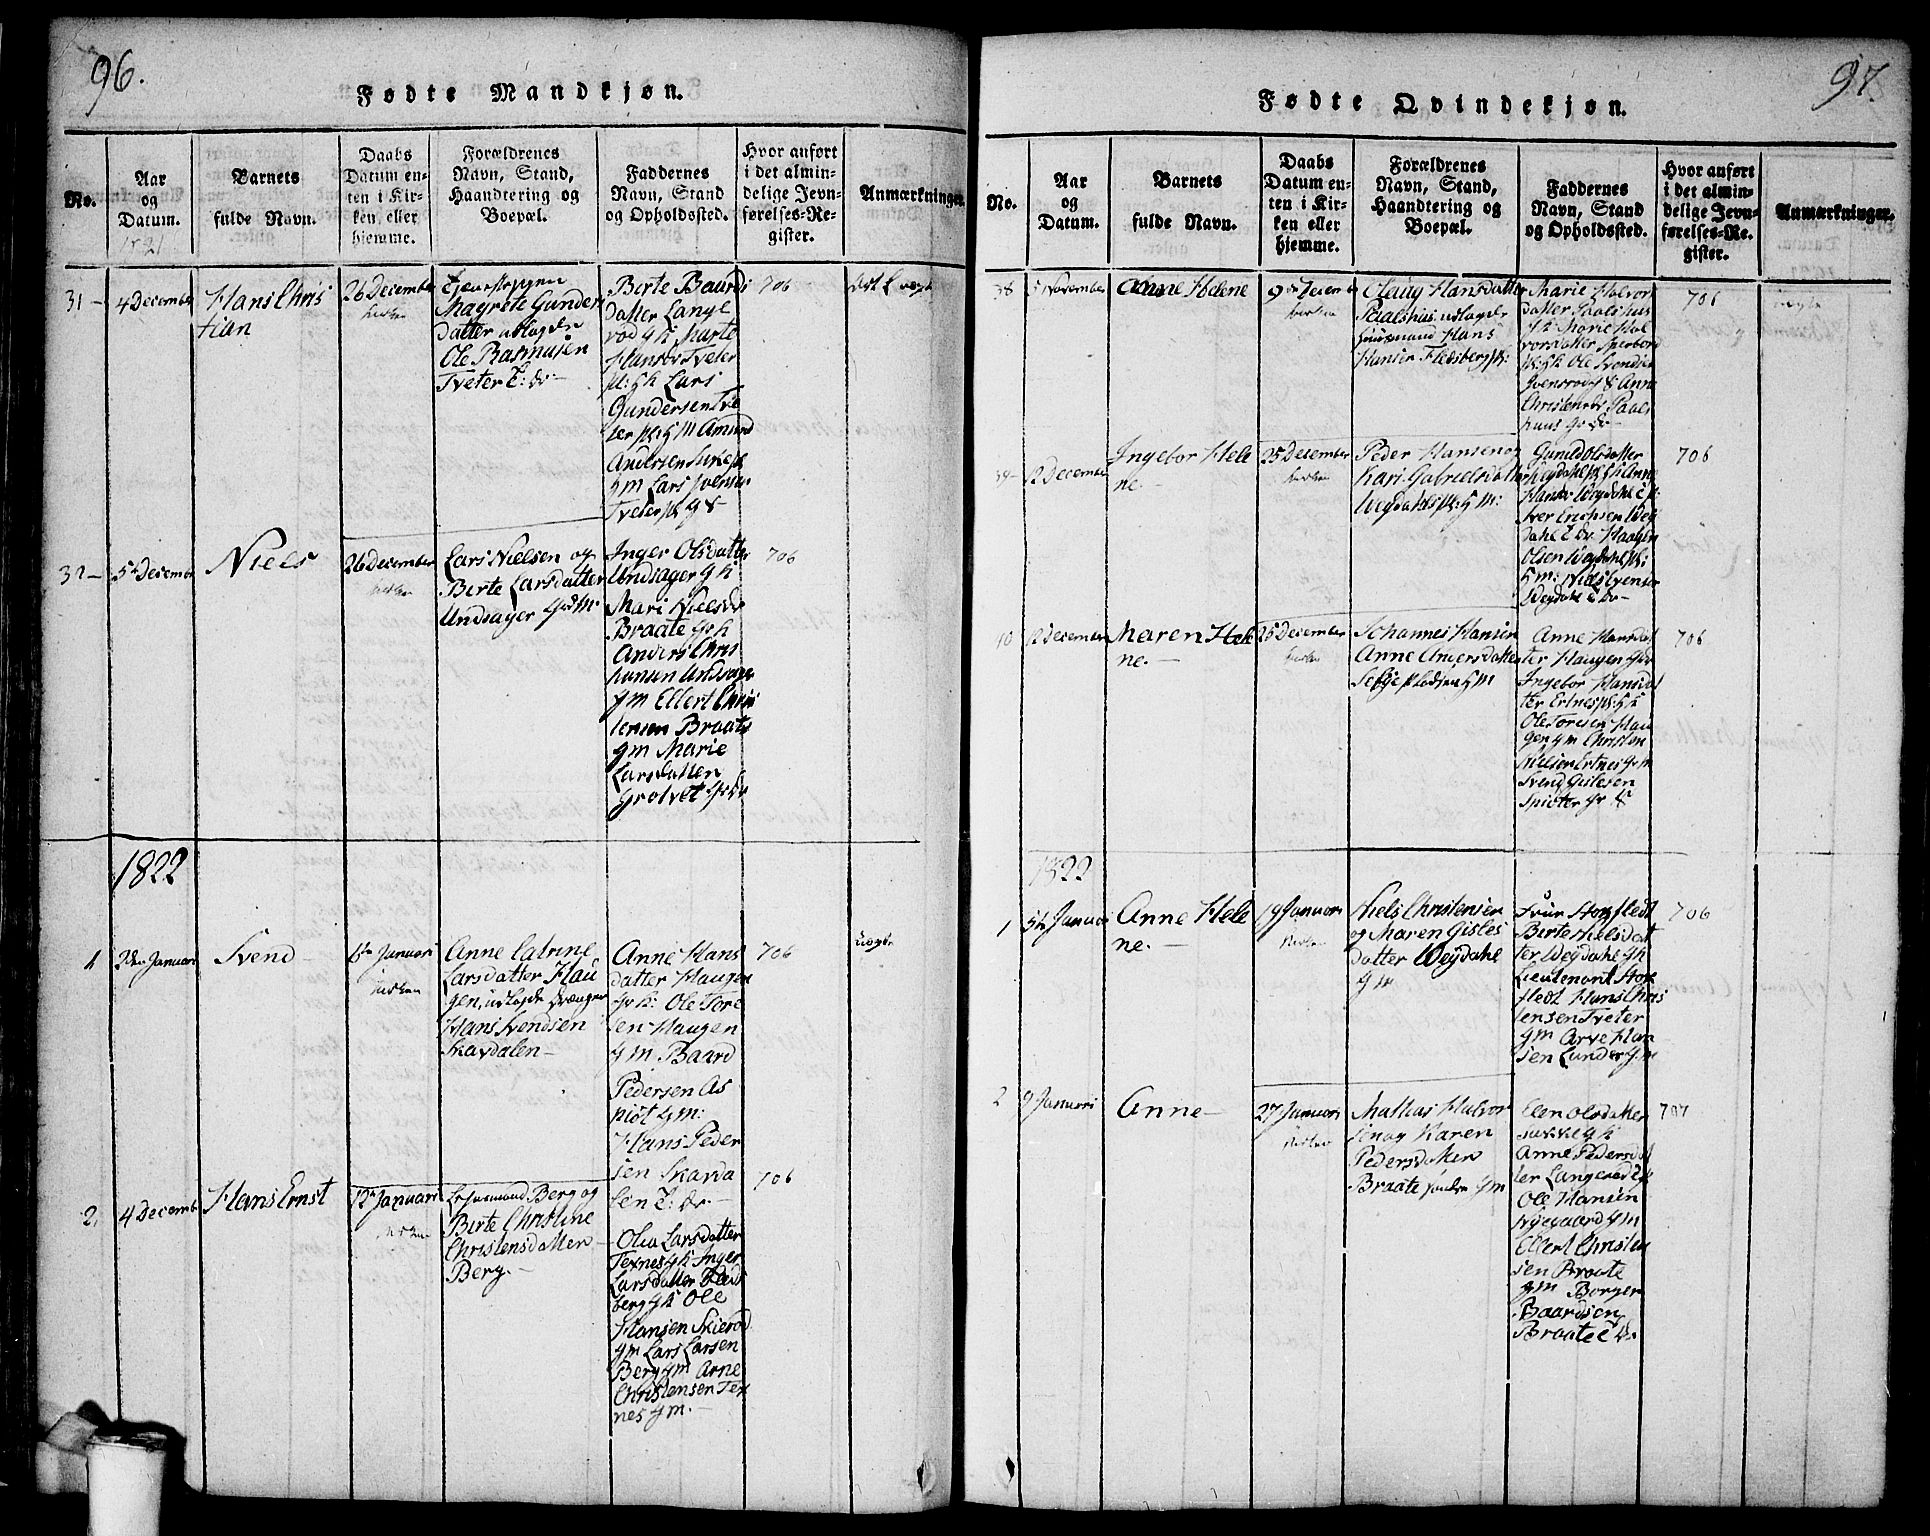 96.
Fødte Mandkjøn.
No.
Aar
og
Datum.
1821
Barnets
fulde Navn.
Daabs
Datum en-
ten i Kir-
ken, eller
hjemme.
Forældrenes
Navn, Stand,
Haandtering og
Boepæl.
Faddernes
Navn, Stand
og Opholdssted.
Hvor anført
i det almin-
delige Jevn-
førelses-Re-
gister.
Anmærkninger.
31-
4 December
Hans Chris
tian
26 December
kirken
Magrete Gunders
datter udlagde
Ole Rasmusen
Tveter
Birte Baards
datter Lange
rød g k Marte
Hansdr Tveter
pl: g k Lars
Gundersen Tve
ter pl: g m Amund
Andersen
g m Lars Ivensen
Tveter pl g k
706
uegte
32-
5te December
Niels
26 December
kirken
Lars Nielsen og
Birte Larsdatter
Undsager
Inger Olsdatter
Undsager g k
Mari Nielsdr
Braate g k
Anders Chris
tiansen Undsager
g m Ellert Chris
tensen Braate
g m Marie
Larsdatter
Grotvet
706
1822
1
2den Januari
Svend
Januari
kirken
Anne Catrine
Larsdatter Hau
gen, udlagde drænger
Hans Svendsen
Skavdalen-
Anne Hans
datter Haugen
g k: Ole Tore
sen Haugen
g m Baard
Pedersen As
piøt g m:
Hans Peder
sen Skavda
len
706
uegte
2.
4 December
Hans Ernst
12te Januari
kirken
Berg og
Birte Christine
Christensdatter
Berg.-
Olia Larsdatter
Texnes g k Inger
Larsdatter
berg g k Ole
Hansen Skierød
g m Lars Larsen
Berg g m Arne
Christensen Tex
nes g m.-
706
97.
Fødte Qvindekjøn.
No.
Aar
og
Datum.
Barnets
fulde Navn.
Daabs
Datum en-
ten i Kir-
ken eller
hjemme.
Forældrenes
Navn, Stand,
Haandtering og
Boepæl.
Faddernes
Navn, Stand
og Opholdssted.
Hvor anført
i det almin-
delige Jevn-
førelses-Re-
gister.
Anmærkninger.
38
November
Anne Helene
kirken
Olaug Hansdatter
Paalshus udlagde
Hans
Hansen Fledsberg
Marie Halvors
datter Paalshus
g k Marie Hal
vorsdatter
pl: g k Ole Svendsen
g k Anne
Christensdr Paals
huus
706
uegte
39-
12 December
Ingebor Hele
ne.-
25 December
kirken
Peder Hansen og
Kari Gabrielsdatter
Wegdahl pl: g m:
Gunild Olsdatter
Wegdahl pl g k Anne
Hansdr Wegdahl
Iver Erichsen Weg
dahl Haagen
Olsen Wegdahl pl:
g m: Niels Evensen
Wegdahl
706
40
12 December
Maren Hele
ne.-
26 December
kirken
Johannes Hansen
Anne Andersdatter
Anne Hansdat
ter Haugen
Ingebor Hansdat
ter Ertnes pl: g k
Ole Toresen Hau
gen g m Christen
Nielsen Ertnes g m
Svend Gislesen
706
1822
1
5te Januari
Anne Hele
ne.-
19 Januari
kirken
Niels Christensen
og Maren Gisles
datter Wegdahl
g m
Fruе Horfledt
Birte Nielsdat
ter Wegdahl g k
Lieutenant Hor
fledt Hans Chris
tensen Tveter
g m Arve Han
sen Lunder g m
706
2
9 Januari
Anne-
27 Januari
kirken
Mathias Halvor
sen og Karen
Pedersdatter
Braate g m
Elen Olsdatter
g k
Anne Pedersdat
ter Langaard g k
Ole Hansen
Nygaard g m
Ellert Christen
sen Braate
g m Borger
Baardsen
Braate
707